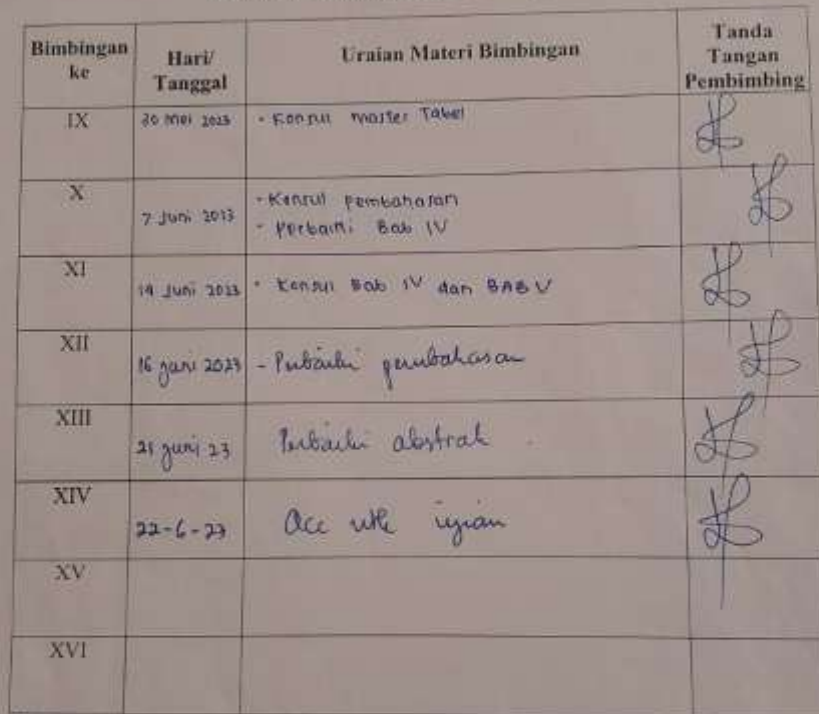 Bimbingan ke
Hari/ Tanggal
Uraian Materi Bimbingan
Tanda Tangan Pembimbing
IX
30 Mei 2023
- Konsul Master Tabel
X
7 Juni 2023
- Konsul pembahasan
- Perbaiki Bab IV
XI
14 Juni 2023
- Konsul Bab IV dan BAB V
XII
16 Juni 2023
- Perbaiki pembahasan
XIII
21 Juni 23
Perbaiki abstrak
XIV
22-6-23
Acc utk ujian
XV
XVI